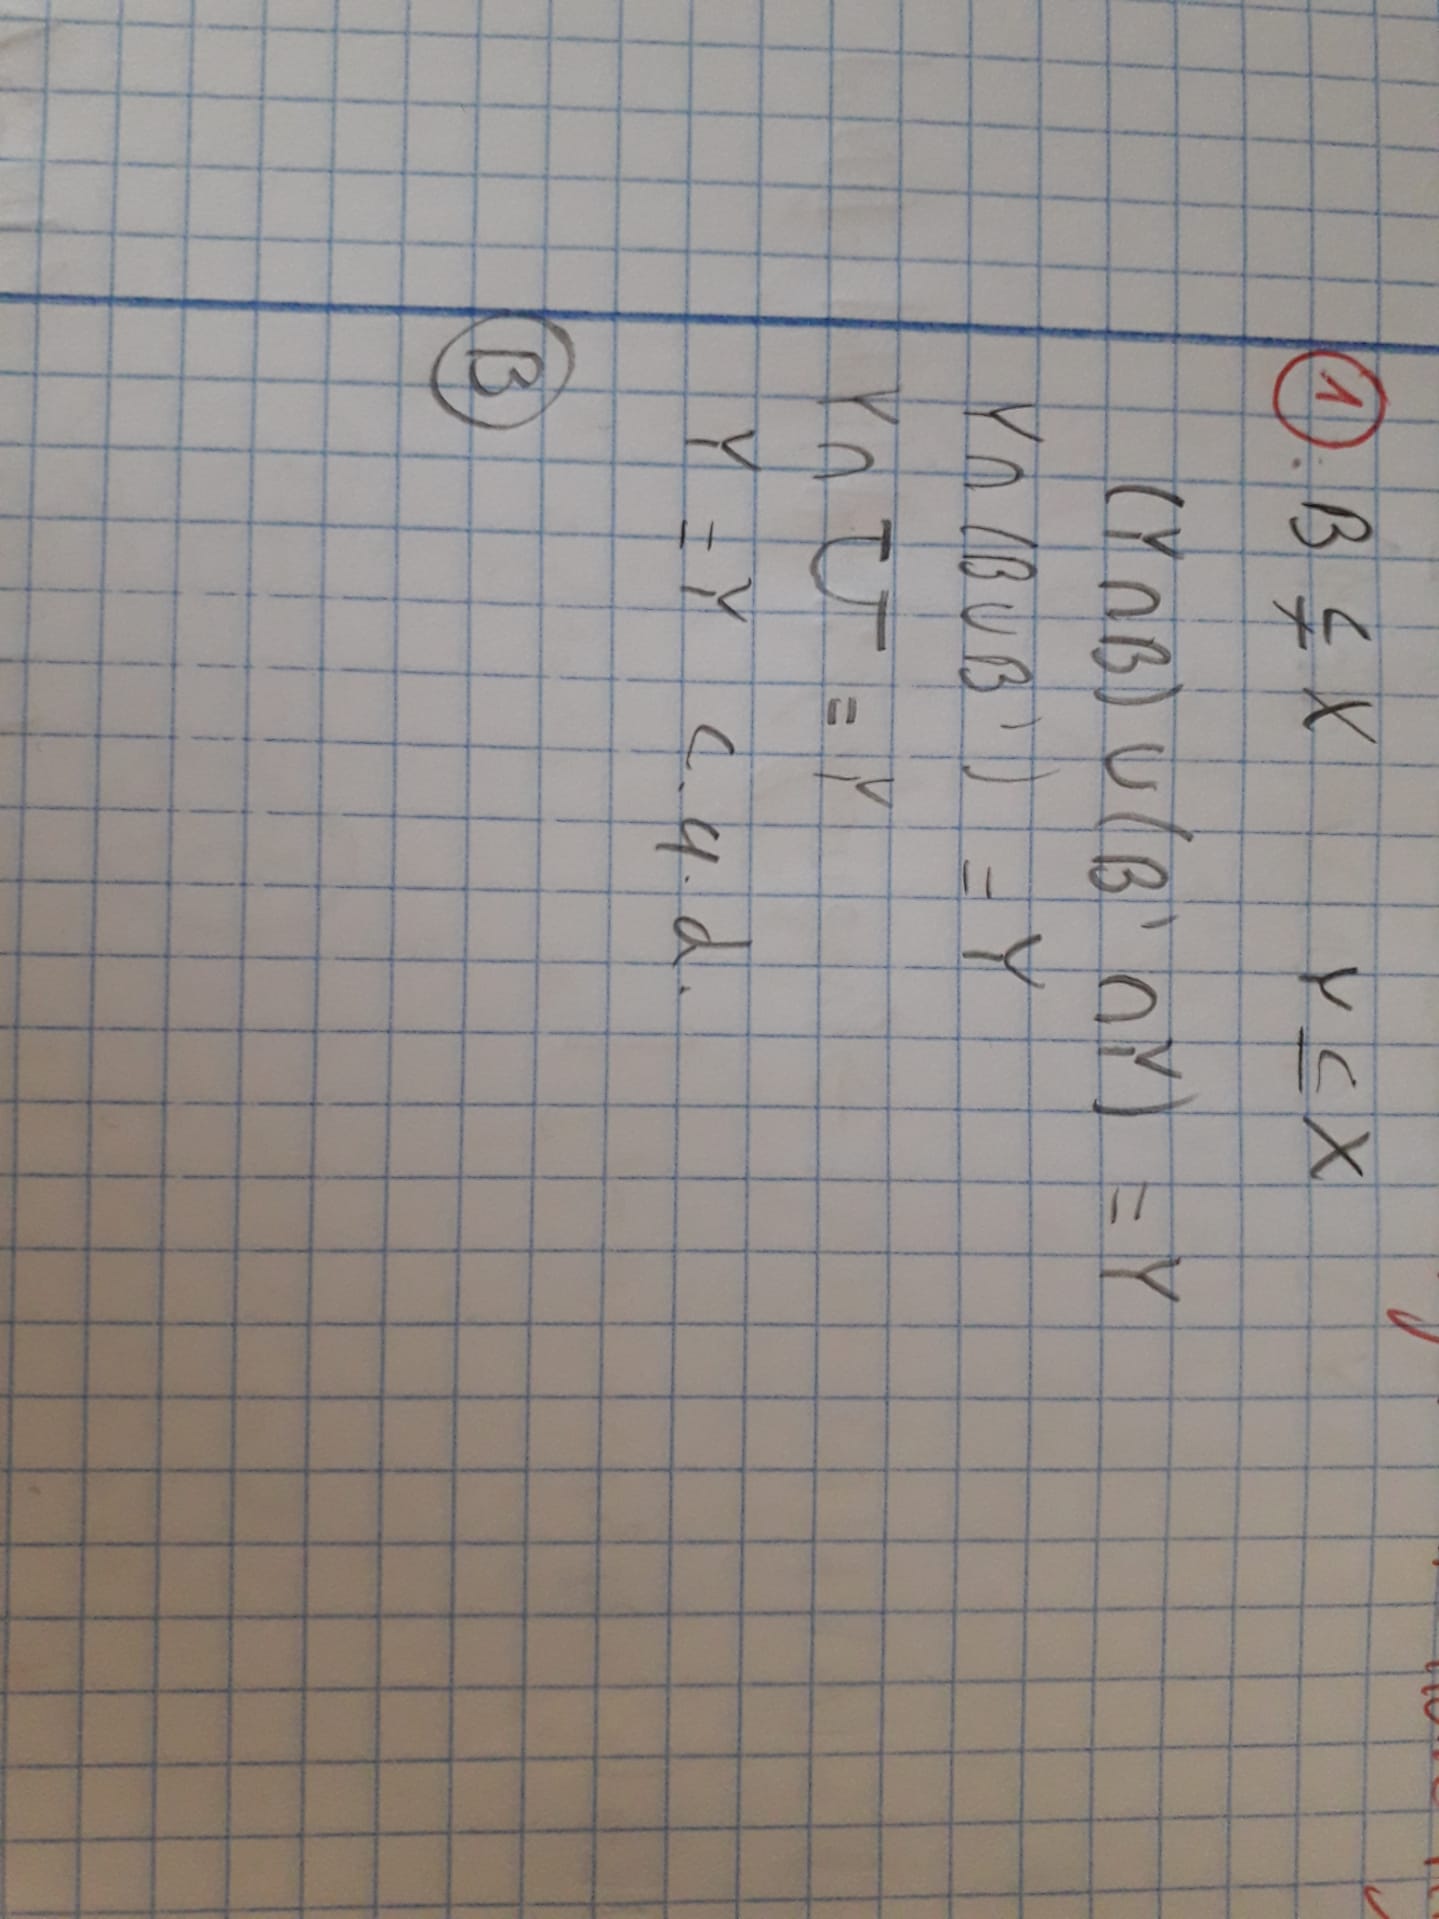 1. B ⊊ X Y ⊆ X
(Y∩B) ∪ (B' ∩Y) = Y
Y∩ (B∪B') = Y
Y∩ U = Y
Y = Y c.q.d.
B